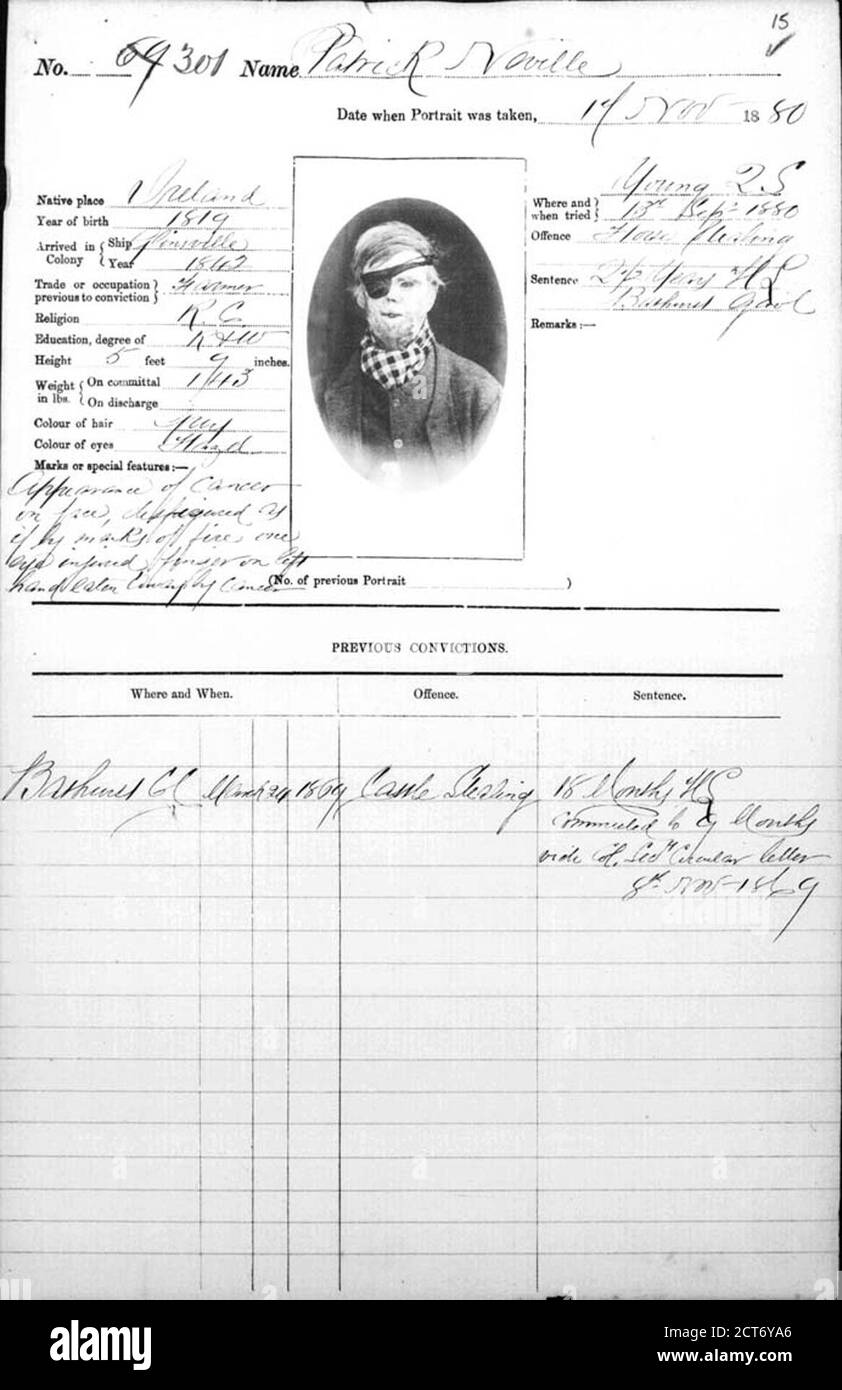 15
No. 69 301 Name Patrick Neville
Date when Portrait was taken, 17 Nov 1880
Native place Ireland
Year of birth 1819
Arrived in Colony { Ship
Year 1842
Trade or occupation previous to conviction } Farmer
Religion R. C.
Education, degree of R & W
Height 5 feet 9 inches.
Weight in lbs. { On committal 143
On discharge
Colour of hair Grey
Colour of eyes Hazel
Marks or special features:—
Appearance of Cancer
on face, disfigured as
if by marks of fire, one
eye injured finger on left
hand eaten away by cancer
Young Q S
Where and when tried } 13th Sept 1880
Offence Horse Stealing
Sentence 2½ Years H L
Bathurst Gaol
Remarks:—
(No. of previous Portrait )
PREVIOUS CONVICTIONS.
Where and When. Offence. Sentence.
Bathurst March 24 1869 Cattle Stealing 18 Months H L
commuted to 9 Months
vide Col. Secy Circular letter
8th Nov 1869
alamy
alamy
Image ID: 2CT6YA6
www.alamy.com